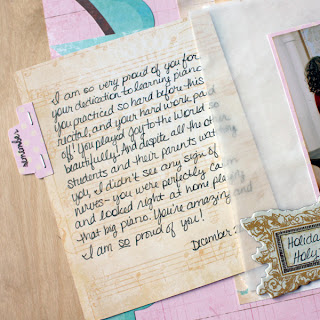 I am so very proud of you for
your dedication to learning piano.
You practiced so hard before this
recital, and your hard work paid
off! You played Joy to the World so
beautifully! And despite all the ot
students and their parents wat
you, I didn't see any sign of
nerves - you were perfectly ca
and looked right at home playing
that big piano. You're amazing
& I am so proud of you!
December
remember
Holiday
Holly